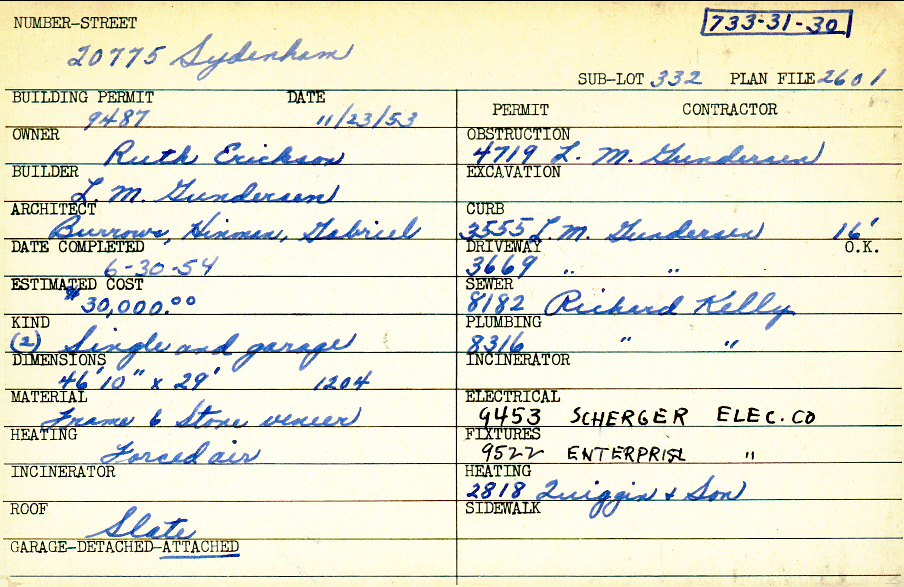 NUMBER-STREET
733-31-30
20775 Sydenham
SUB-LOT 332 PLAN FILE 2601
BUILDING PERMIT DATE
9487 11/23/53
OWNER
Ruth Erickson
BUILDER
L. M. Gundersen
ARCHITECT
Burrows, Hinman, Gabriel
DATE COMPLETED
6-30-54
ESTIMATED COST
$30,000.00
KIND
(2) Single and garage
DIMENSIONS
46'10" x 29' 1204
MATERIAL
Frame & Stone veneer
HEATING
Forced air
INCINERATOR
ROOF
Slate
GARAGE-DETACHED-ATTACHED
PERMIT CONTRACTOR
OBSTRUCTION
4719 L. M. Gundersen
EXCAVATION
CURB
3555 L. M. Gundersen 16'
DRIVEWAY O.K.
3669 " "
SEWER
8182 Richard Kelly
PLUMBING
8316 " "
INCINERATOR
ELECTRICAL
9453 SCHERGER ELEC. CO
FIXTURES
9522 ENTERPRISE "
HEATING
2818 Quiggin & Son
SIDEWALK